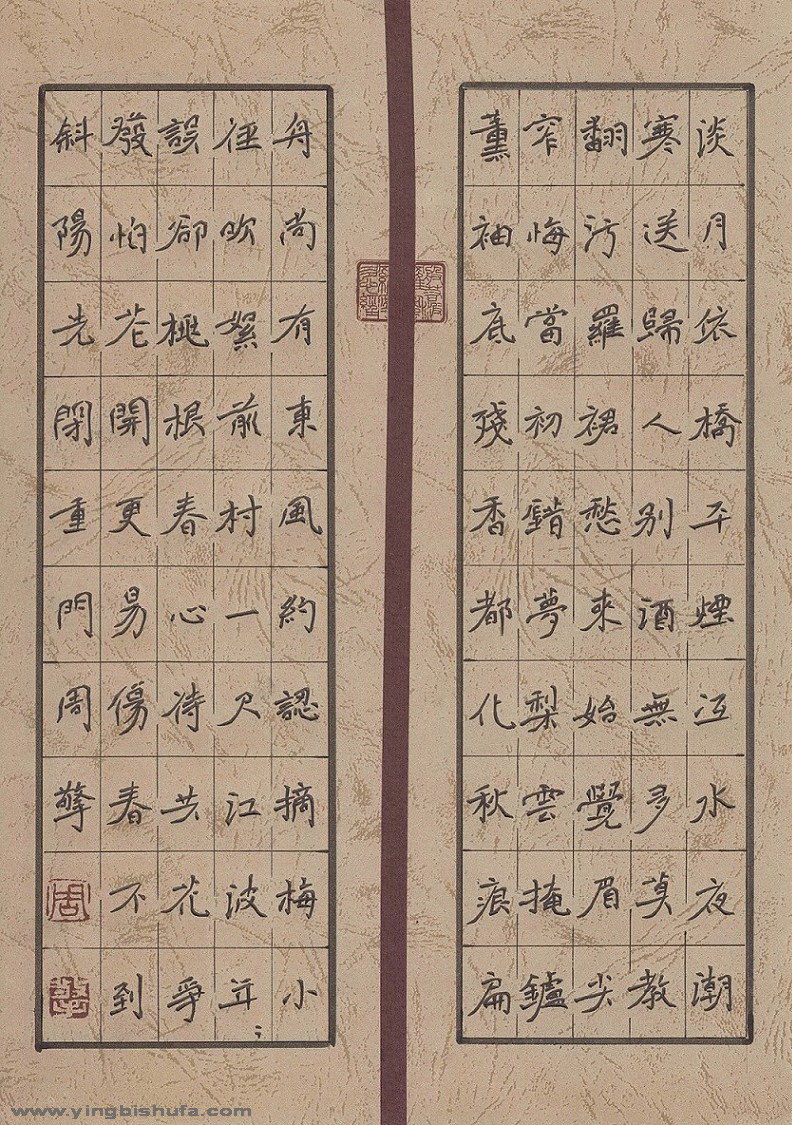 淡月依橋平煙沍水夜潮
寒送歸人别酒無多莫教
翻污羅裙愁來始覺眉尖
窄悔當初錯夢梨雲掩鑪
薰袖底殘香都化秋痕扁
舟尚有東風約認摘梅小
徑吹絮前村一尺江波年〻
誤卻桃根春心待共花爭
發怕花開更易傷春不到
斜陽先閉重門周擎
周
擎
www.yingbishufa.com